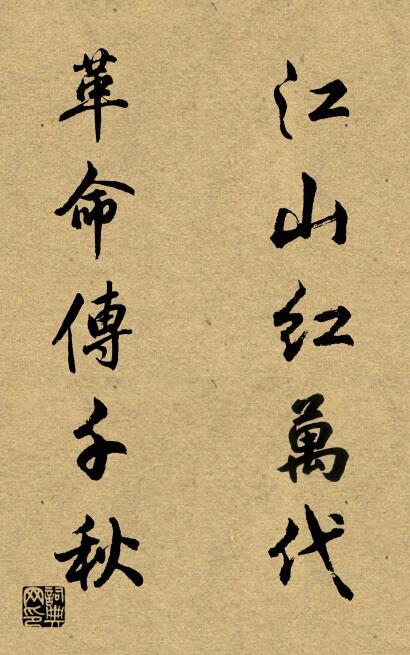 江山红萬代
革命傳千秋
詞典网印